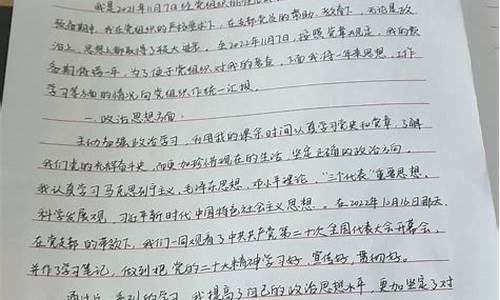 我是2021年11月7日经党组织批准
预备期中，我在党组织的严格要求下，在支部党员的帮助、教育下，无论是政
治上、思想上都取得了较大进步。至2022年11月7日，按照党章规定，我的预
备期将满一年。为了便于党组织对我的考查，下面我将一年来思想、工作
学习等方面的情况向党组织作统一汇报。
一、政治思想方面。
主动加强政治学习，利用我的课余时间认真学习党史和党章，了解
我们党的光辉奋斗史，从而更加珍惜现在的生活，坚定正确的政治方向。
我认真学习马克思列宁主义、毛泽东思想、邓小平理论、“三个代表”重要思想、
科学发展观、习近平新时代中国特色社会主义思想。在2022年10月16日那天，
在党支部的带领下，我们一同观看了中共共产党第二十次全国代表大会开幕会，
并作了学习笔记，做到把党的二十大精神学习好、宣传好、贯彻好。
通过这一系列的学习，我提高了自己的政治思想水平，更加坚定了对